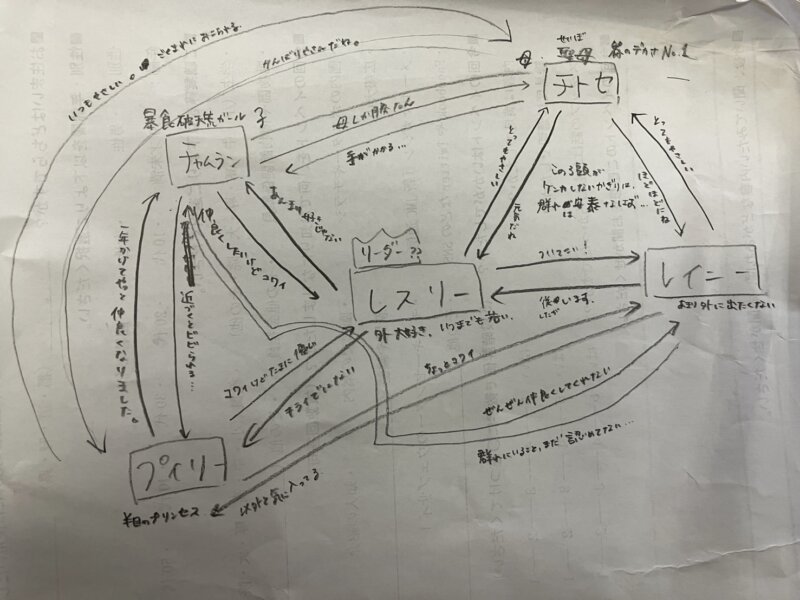 いつもやさしい。ごくまれにおこられる。
がんばりやさんだね。
母 聖母 群のデカさNo.1
せいぼ
チトセ
暴食破荒ガール 子
チャムラン
母しか勝たん
手がかかる…
とってもやさしい
元気だね
この3頭が
ケンカしないかぎりは、
群れは安泰なはず…
ほどほどにね
とってもやさしい
あんまり好きじゃない
仲良くしたいけどコワイ
一年かけてやっと仲良くなりました。
近づくとビビられる…
リーダー??
レスリー
外大好き、いつまでも若い。
ついてこい!
従います。
レイニー
あまり外に出たくない
コワイけどたまに優しい
キライではない
ちょっとコワイ
ぜんぜん仲良くしてくれない
群れにいること、まだ認めてない…
プイリー
半目のプリンセス
以外と気に入ってる